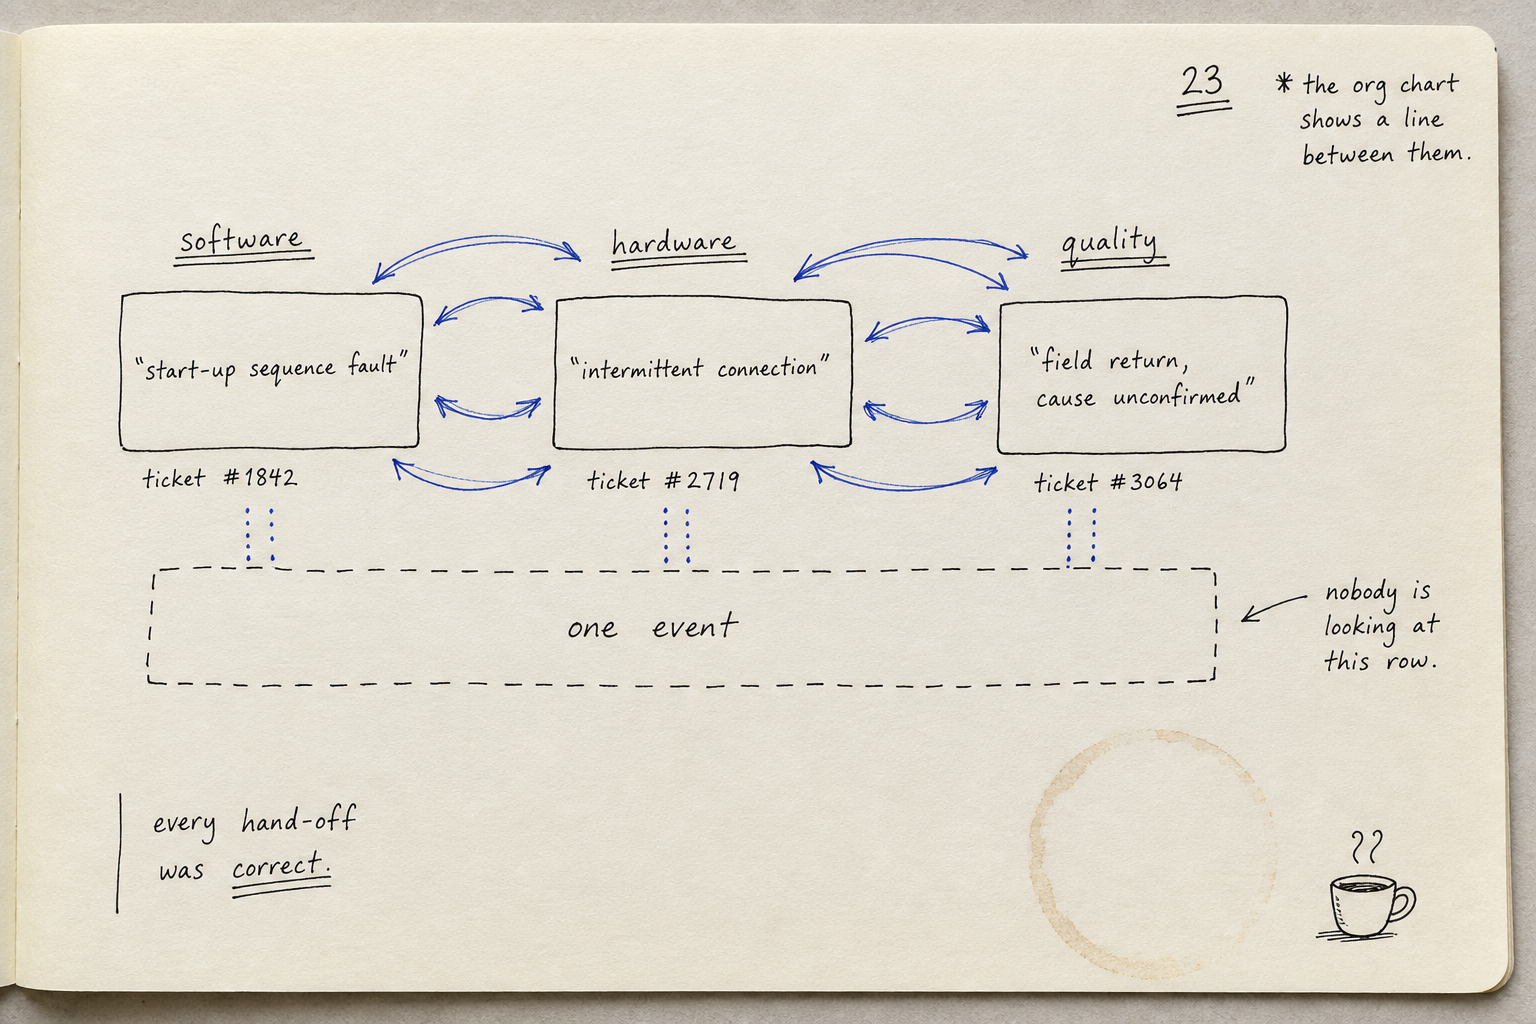 23
* the org chart
shows a line
between them.
software
hardware
quality
"start-up sequence fault"
"intermittent connection"
"field return,
cause unconfirmed"
ticket #1842
ticket #2719
ticket #3064
one event
nobody is
looking at
this row.
every hand-off
was correct.